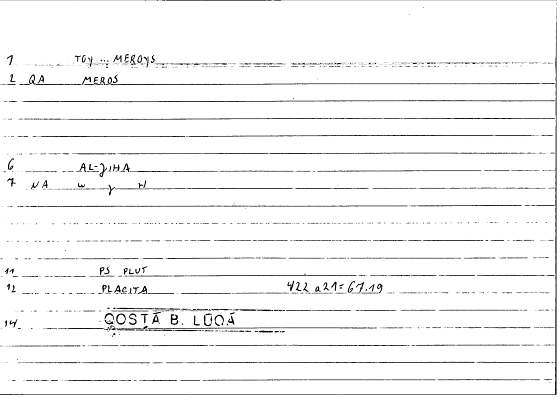 1 TOY ... MEROYS
2 QA MEROS
6 AL-ʒIHA
7 NA W ʒ H
11 PS PLUT
12 PLACITA 422 a21=67.19
14 QOSTĀ B. LŪQĀ